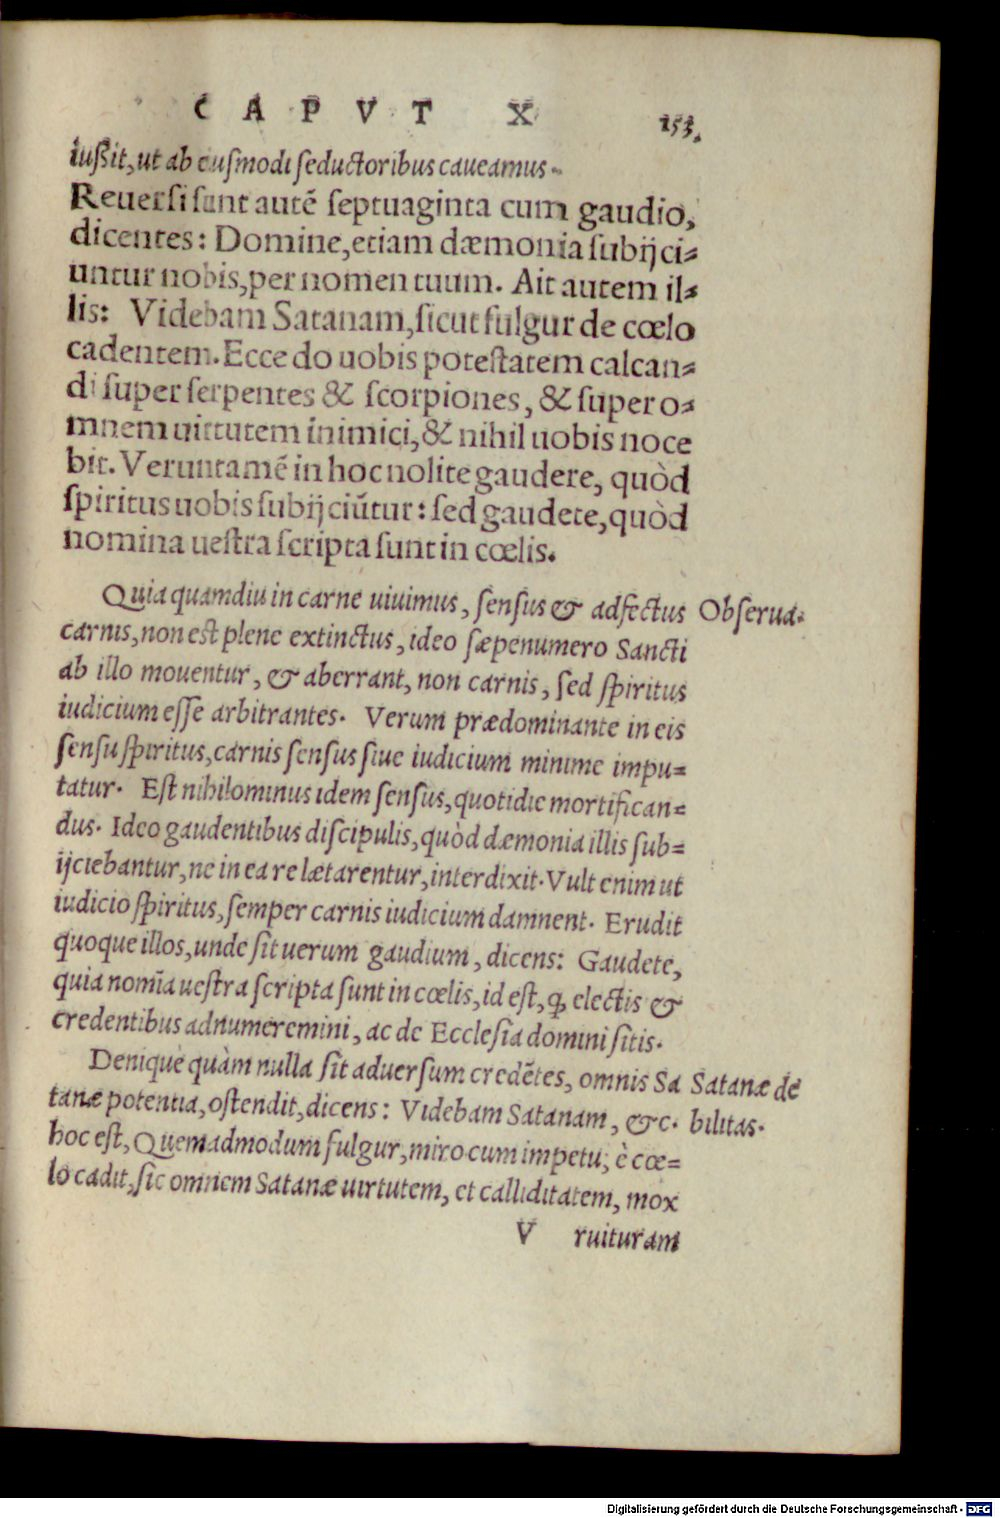 CAPVT X 153.
iußit, ut ab eiusmodi seductoribus caueamus.
Reuersi sunt autē septuaginta cum gaudio,
dicentes: Domine, etiam dæmonia subijci-
untur nobis, per nomen tuum. Ait autem il-
lis: Videbam Satanam, sicut fulgur de cœlo
cadentem. Ecce do uobis potestatem calcan-
di super serpentes & scorpiones, & super o-
mnem uirtutem inimici, & nihil uobis noce
bit. Veruntamē in hoc nolite gaudere, quòd
spiritus uobis subijciūtur: sed gaudete, quòd
nomina uestra scripta sunt in cœlis.
Quia quamdiu in carne uiuimus, sensus & adfectus Obserua.
carnis, non est plene extinctus, ideo sæpenumero Sancti
ab illo mouentur, & aberrant, non carnis, sed spiritus
iudicium esse arbitrantes. Verum prædominante in eis
sensu spiritus, carnis sensus siue iudicium minime impu-
tatur. Est nihilominus idem sensus, quotidie mortifican-
dus. Ideo gaudentibus discipulis, quòd dæmonia illis sub-
ijciebantur, ne in ea re lætarentur, interdixit. Vult enim ut
iudicio spiritus, semper carnis iudicium damnent. Erudit
quoque illos, unde sit uerum gaudium, dicens: Gaudete,
quia nomīa uestra scripta sunt in cœlis, id est, ꝙ electis &
credentibus adnumeremini, ac de Ecclesia domini sitis.
Denique quàm nulla sit aduersum credētes, omnis Sa Satanæ de
tanæ potentia, ostendit, dicens: Videbam Satanam, &c. bilitas.
hoc est, Quemadmodum fulgur, miro cum impetu, è cœ-
lo cadit, sic omnem Satanæ uirtutem, et calliditatem, mox
V ruituram
Digitalisierung gefördert durch die Deutsche Forschungsgemeinschaft - DFG